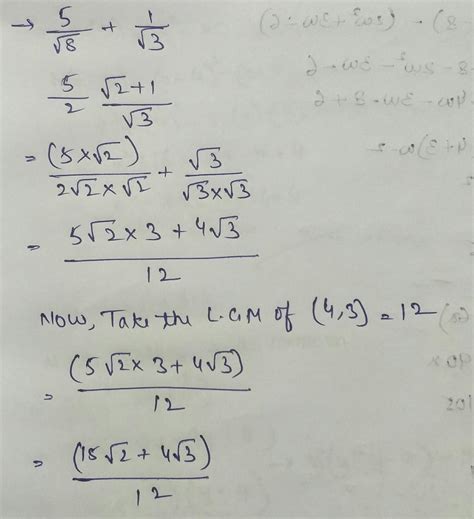 → 5/√8 + 1/√3
5/2 (√2+1)/√3
= (5×√2)/(2√2×√2) + √3/(√3×√3)
= (5√2×3+4√3)/12
Now, Take the L.C.M of (4,3) = 12
= (5√2×3+4√3)/12
= (15√2+4√3)/12